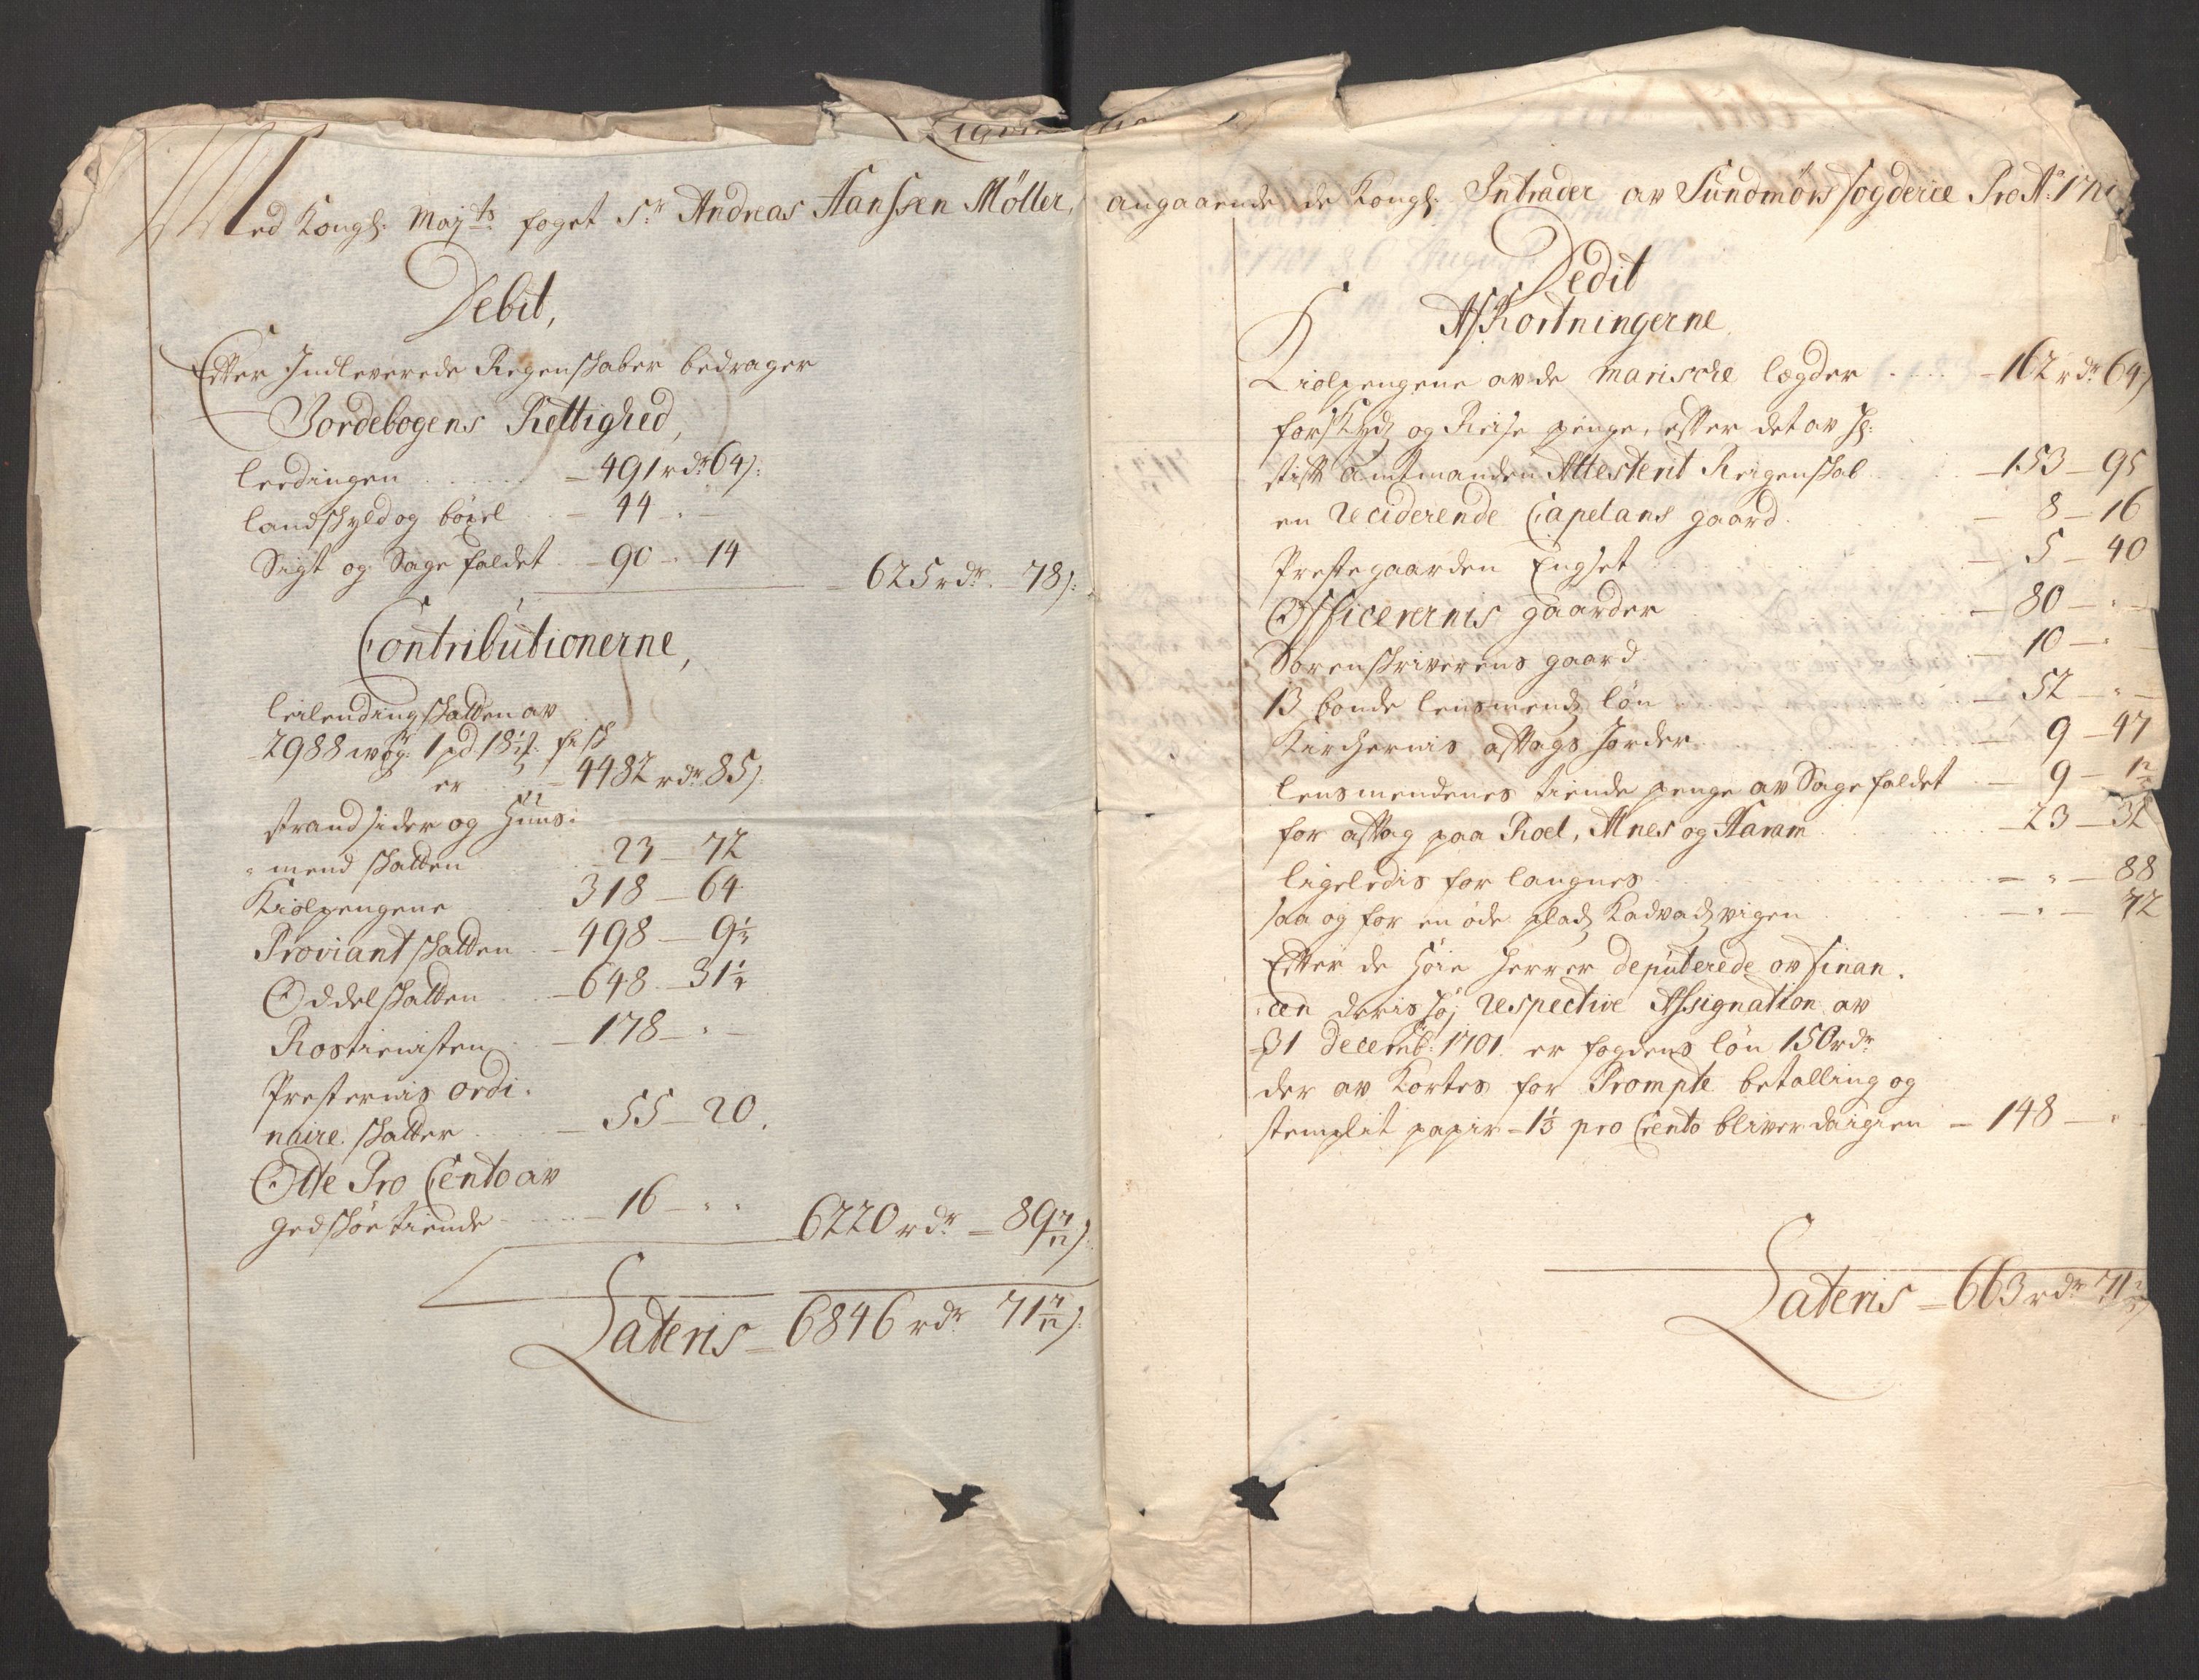 Liqvidation
Med Kongl: Mayts: foget Sr: Andreas Hanssen Möller, angaaende de Kongl: Intrader av Sundmørs fogderie Pro Ao: 1701
Debit,
Efter Indleverede Regenskaber bedrager
Jordebogens Rettighed,
Leedingen - 491 rdr 64 s:
Landskyld og böxel - 44 - "
Sigt og Sagefaldet - 90 - 14
625 rdr: 78 s:
Contributionerne,
Leilendingskatten av
2988 wog: 1 pd: 18 1/2 fisk
er - 4482 rdr 85 s:
Strandsider og Huus:
mend skatten - 23 - 72
Kiolpengene 318 - 64
Proviantskatten - 498 - 9 1/3
Oddelskatten - 648 - 31 1/4
Rostienisten - 178 - "
Presternis ordi:
naire skatter - 55 - 20.
Otte Pro Cento av
gedskøe tiende - 16 - " "
6220 rdr - 89 7/12 s:
Lateris = 6846 rdr 71 7/12 s:
Dedit
Afkortningerne
Kiolpengene av de marische legder - 162 rdr 64 s
forskydz og Reise penge, efter det av H:
stift amtmanden Attesterit Reigenskab - 153 - 95
en Reciderende Capelans gaard - 8 - 16
Prestegaarden Engset - 5 - 40
Officerernis gaarder - 80 - "
Sorenskriverens gaard - 10 - "
13 bonde lensmends løn - 52 - "
Kirchernis aftags Jorder - 9 - 47
Lensmendenes tiende penge av Sagefaldet - 9 - 1 2/5
for aftag paa Roel, Alnes og Haram - 23 - 32
ligeledis for langnes - " - 88
saa og for en øde pladz Kadvadzvigen - " - 72
Efter de Høie Herrer deputerede ov finan:
:cen deris høj respective Assignation av
31 decemb: 1701. er fogdens løn 150 rdr
der av Kortes for Prompte betalling og
stemplit papir - 1 1/3 pro Cento bliver daigien - 148 - "
Lateris = 663 rdr 71 2/5 s